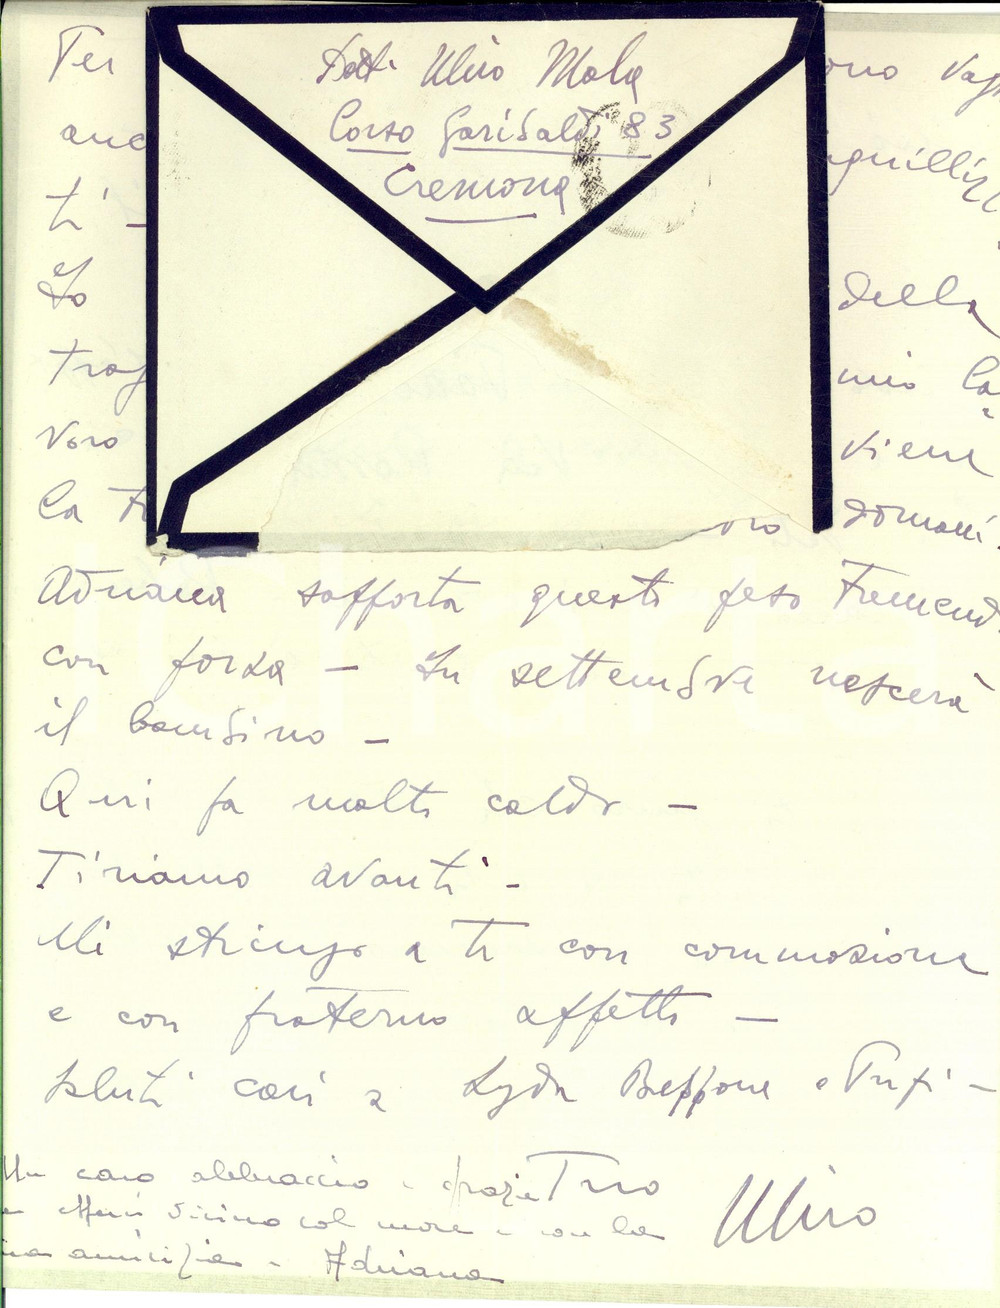 Dott. Uliro Mola
Corso Garibaldi 83
Cremona
Per
anc
ti -
Io
trag
voro
la
ono
quilliz
della
mio la
viene
oro domani.
Adriana sopporta questo peso tremend
con forza - In settembre nascerà
il bambino -
Qui fa molto caldo -
Tiriamo avanti -
Mi stringo a te con commozione
e con fraterno affetto -
Saluti cari a Lyda Beppone e Pupi -
Un caro abbraccio
vicino col cuore e con la
amicizia - Adriana